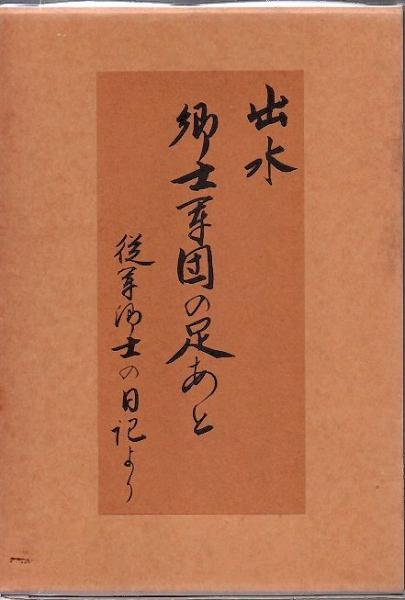 出水
郷士軍団の足あと
従軍郷士の日記より